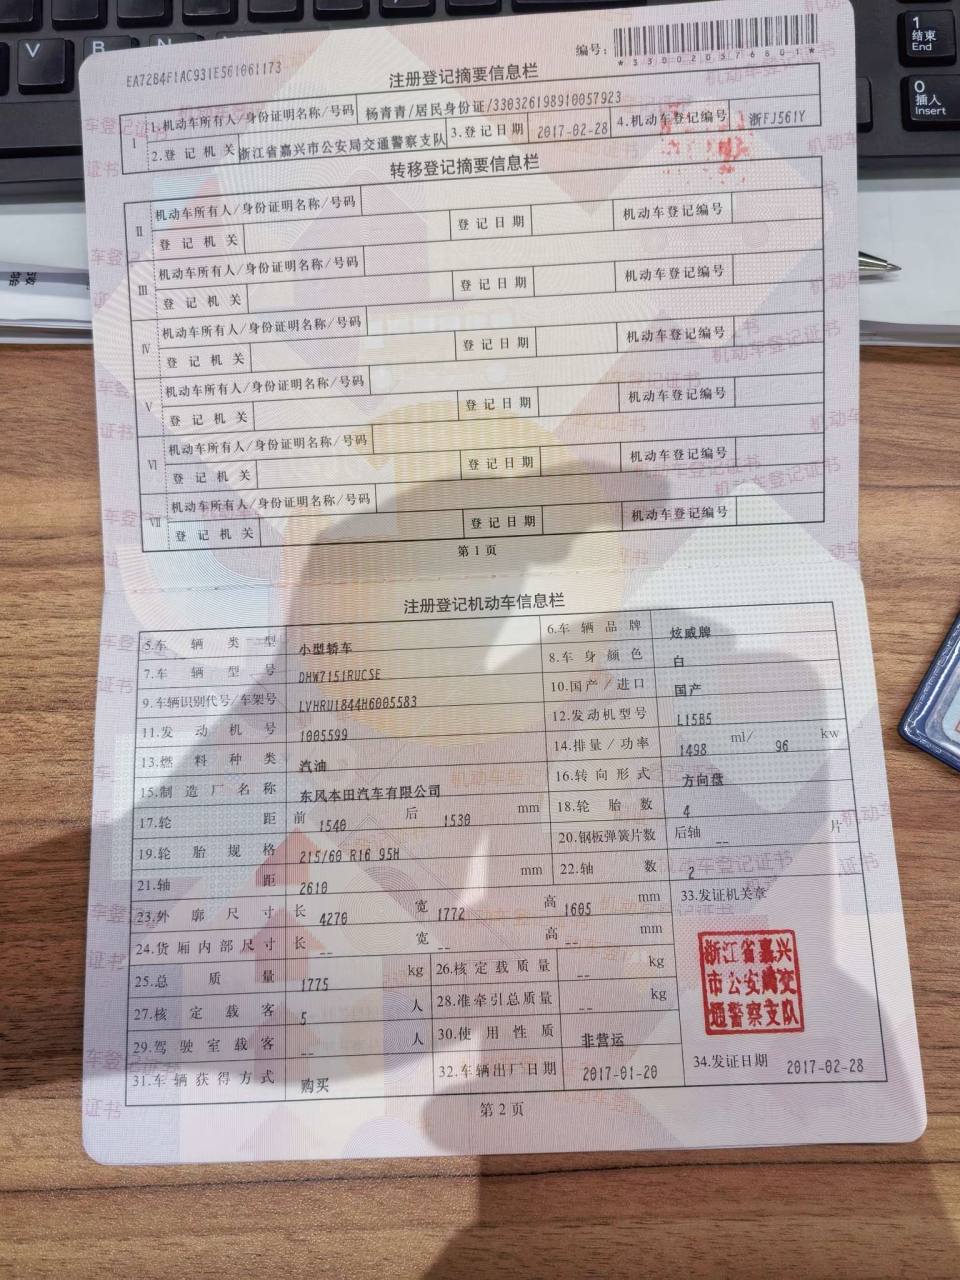 V
B
1
结束
End
0
插入
Insert
编号:
*330020576801*
EA72B4F1AC931E561061173
注册登记摘要信息栏
I
1.机动车所有人/身份证明名称/号码 杨青青/居民身份证/330326198910057923
2.登记机关 浙江省嘉兴市公安局交通警察支队 3.登记日期 2017-02-28 4.机动车登记编号 浙FJ561Y
转移登记摘要信息栏
II
机动车所有人/身份证明名称/号码
登记机关 登记日期 机动车登记编号
III
机动车所有人/身份证明名称/号码
登记机关 登记日期 机动车登记编号
IV
机动车所有人/身份证明名称/号码
登记机关 登记日期 机动车登记编号
V
机动车所有人/身份证明名称/号码
登记机关 登记日期 机动车登记编号
VI
机动车所有人/身份证明名称/号码
登记机关 登记日期 机动车登记编号
VII
机动车所有人/身份证明名称/号码
登记机关 登记日期 机动车登记编号
第1页
注册登记机动车信息栏
5.车辆类型 小型轿车 6.车辆品牌 炫威牌
7.车辆型号 DHW7151RUCSE 8.车身颜色 白
9.车辆识别代号/车架号 LVHRU1844H6005583 10.国产/进口 国产
11.发动机号 1005599 12.发动机型号 L15B5
13.燃料种类 汽油 14.排量/功率 1498 ml/ 96 kw
15.制造厂名称 东风本田汽车有限公司 16.转向形式 方向盘
17.轮距 前 1540 后 1530 mm 18.轮胎数 4
19.轮胎规格 215/60 R16 95H 20.钢板弹簧片数 后轴 -- 片
21.轴距 2610 mm 22.轴数 2
23.外廓尺寸 长 4270 宽 1772 高 1605 mm 33.发证机关章
24.货厢内部尺寸 长 -- 宽 -- 高 -- mm
25.总质量 1775 kg 26.核定载质量 -- kg
27.核定载客 5 人 28.准牵引总质量 -- kg
29.驾驶室载客 -- 人 30.使用性质 非营运
31.车辆获得方式 购买 32.车辆出厂日期 2017-01-20
浙江省嘉兴
市公安局交
通警察支队
34.发证日期 2017-02-28
第2页